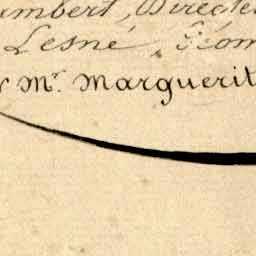 umbert, Directe
Lesné,
Mr. Marguerit